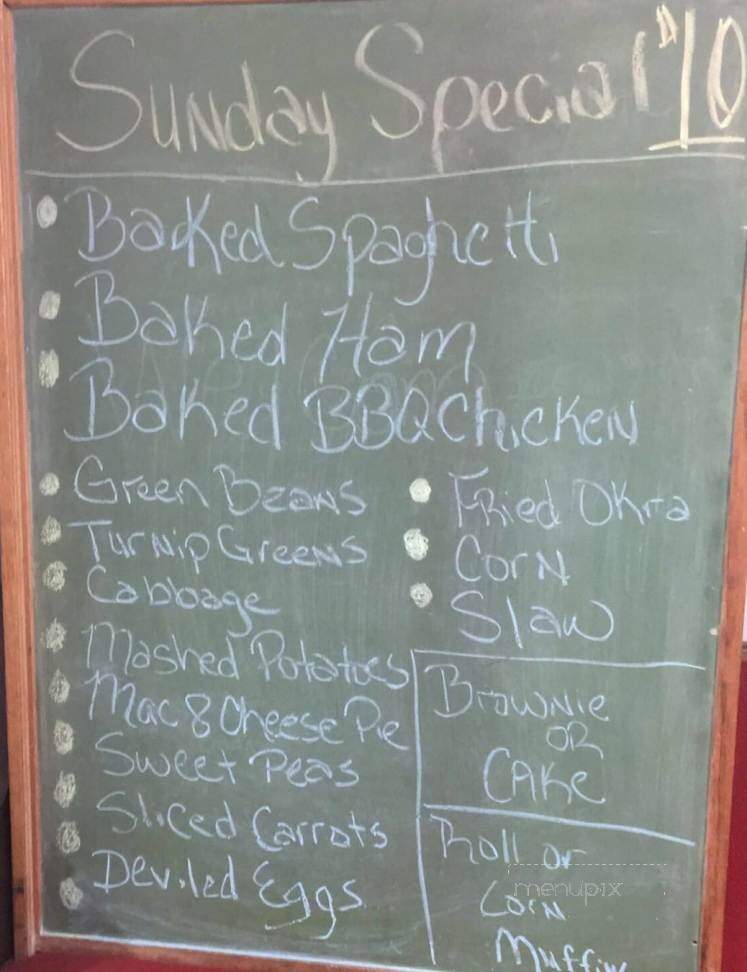 Sunday Special $10
Baked Spaghetti
Baked Ham
Baked BBQ Chicken
Green Beans
Turnip Greens
Cabbage
Mashed Potatoes
Mac & Cheese Pie
Sweet Peas
Sliced Carrots
Deviled Eggs
Fried Okra
Corn
Slaw
Brownie
OR
Cake
Roll or
Corn
Muffin
menupix